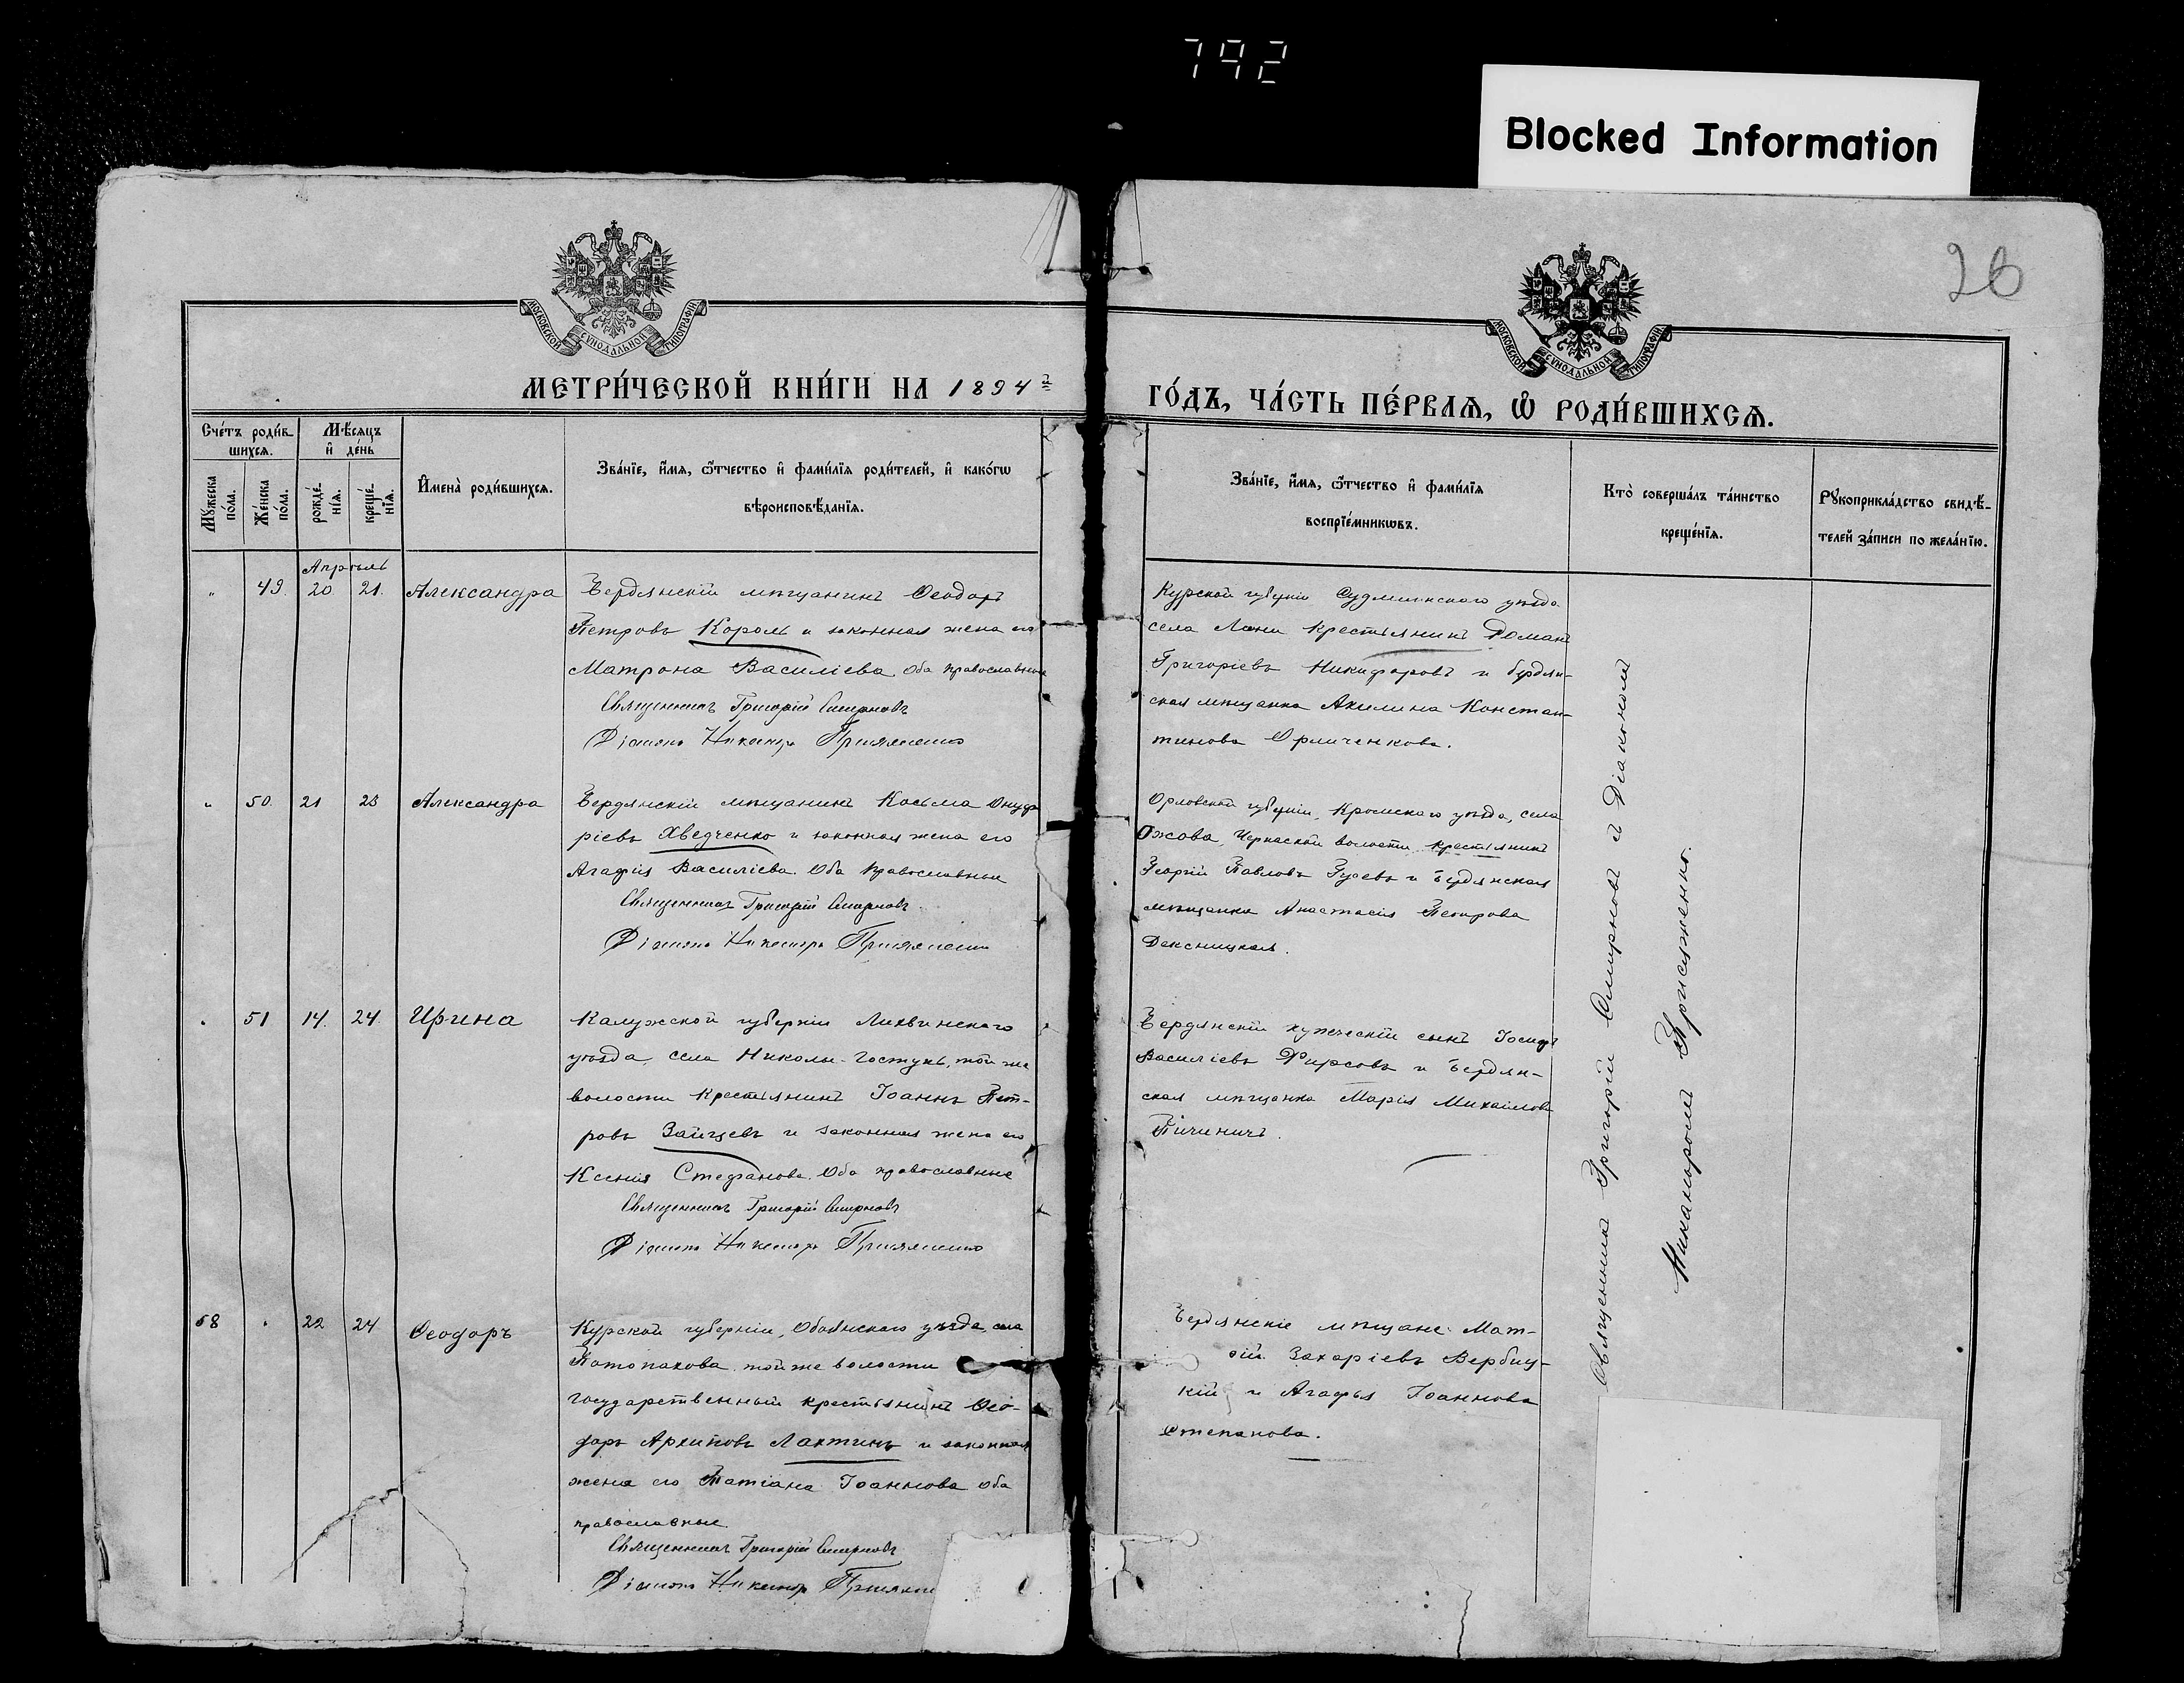 792
Blocked Information
26
МОСКОВСКОЙ СУНОДАЛЬНОЙ ТИПОГРАФІИ
МОСКОВСКОЙ СУНОДАЛЬНОЙ ТИПОГРАФІИ
МЕТРИ́ЧЕСКОЙ КНИ́ГИ НА 1894 й
ГО́ДЪ, ЧА́СТЬ ПЕ́РВАѦ, Ѽ РОДИ́ВШИХСѦ.
Сче́тъ роди́в
шихся.
Мѣ́сяцъ
и҆ де́нь
Мꙋ́жеска
по́ла.
Же́нска
по́ла.
рожде́-
нїѧ.
креще́-
нїѧ.
И҆мена̀ роди́вшихся.
Зва́нїе, и҆́мя, ѻ҆́тчество и҆ фами́лїя роди́телей, и҆ како́гѡ
вѣроисповѣ́данїя.
Зва́нїе, и҆́мя, ѻ҆́тчество и҆ фами́лїя
воспрїе́мникѡвъ.
Кто̀ соверша́лъ та́инство
креще́нїя.
Рꙋкоприкла́дство свидѣ́-
телей за́писи по жела́нїю.
Апрѣль
" 49. 20. 21. Александра
Бердянскій мѣщанинъ Ѳеодоръ
Петровъ Король и законная жена его
Матрона Василіева Оба православные
Священникъ Григорій Смирновъ
Діаконъ Никаноръ Присяженко
Курской губерніи уѣзда
села крестьянинъ Романъ
Григоріевъ Никифоровъ и бердян-
ская мѣщанка Акилина Констан-
тинова Орличенкова.
" 50. 21 23 Александра
Бердянскій мѣщанинъ Косьма Онуф
ріевъ Хведченко и законная жена его
Агафія Василіева. Оба православные
Священникъ Григорій Смирновъ
Діаконъ Никаноръ Присяженко
Орловской губерніи, Кромскаго уѣзда, села
волости крестьянинъ
Георгій Павловъ Гусевъ и бердянская
мѣщанка Анастасія Петрова
" 51 14. 24. Ирина
Калужской губерніи Лихвинскаго
уѣзда, села Николы-Гостунь, той же
волости крестьянинъ Іоаннъ Пет-
ровъ Зайцевъ и законная жена его
Ксенія Стефанова. Оба православные
Священникъ Григорій Смирновъ
Діаконъ Никаноръ Присяженко
Бердянскій купческій сынъ Іосифъ
Василіевъ Фирсовъ и бердян-
ская мѣщанка Марія Михаилова
Пичиничъ.
58 " 22 24 Ѳеодоръ
Курской губерніи, Обоянскаго уѣзда, села
той же волости
государственный крестьянинъ Ѳео-
доръ Архиповъ Лактинъ и законная
жена его Татіана Іоаннова Оба
православные.
Священникъ Григорій Смирновъ
Діаконъ Никаноръ
Бердянскіе мѣщане: Мат-
ѳій Захаріевъ Вербиц-
кій и Агафья Іоаннова
Степанова.
Священникъ Григорій Смирновъ и Діакономъ
Никаноромъ Присяженко.